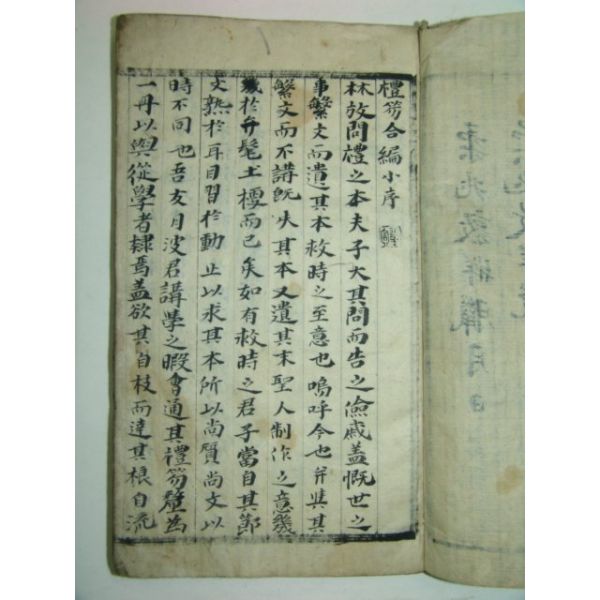 禮笏合編小序
林放問禮之本夫子大其問而告之儉戚盖慨世之
事繁文而遺其本救時之至意也嗚呼今也幷與其
繁文而不講旣失其本又遺其末聖人制作之意幾
幾於弁髦土梗而已矣如有救時之君子當自其節
文熟於耳目習於動止以求其本所以尚質尚文以
時不同也吾友月波君講學之暇會通其禮笏釐爲
一冊以與從學者隷焉盖欲其自枝而達其根自流